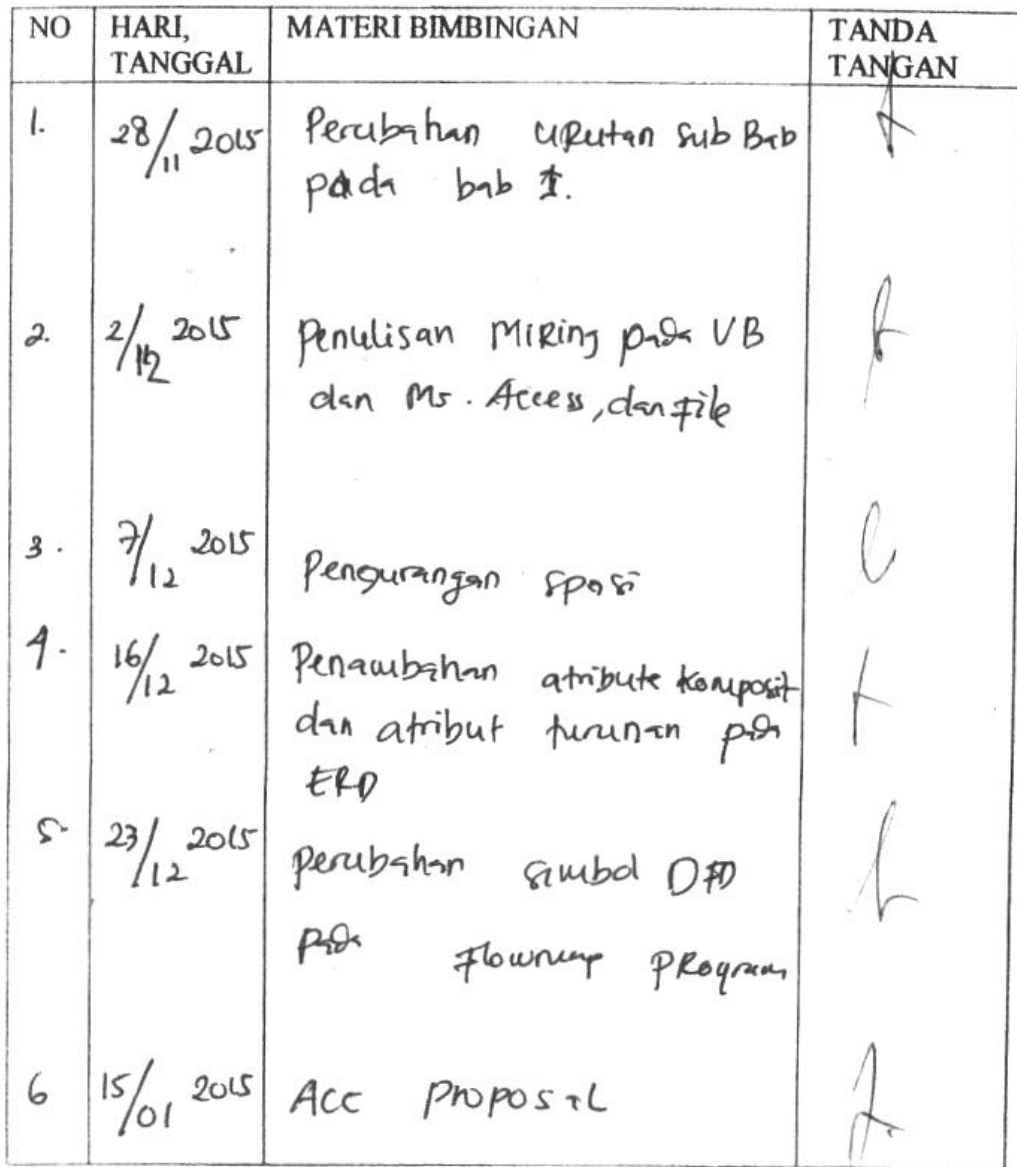 NO HARI, TANGGAL MATERI BIMBINGAN TANDA TANGAN
1. 28/11 2015 Perubahan uRutan sub Bab
pada bab I.
2. 2/12 2015 Penulisan MiRing pada VB
dan Ms. Access, dan File
3. 7/12 2015 Pengurangan spasi
4. 16/12 2015 Penambahan atribute komposit
dan atribut turunan pada
ERD
5. 23/12 2015 perubahan simbol DFD
pada Flowmap PRogram
6 15/01 2015 Acc proposal